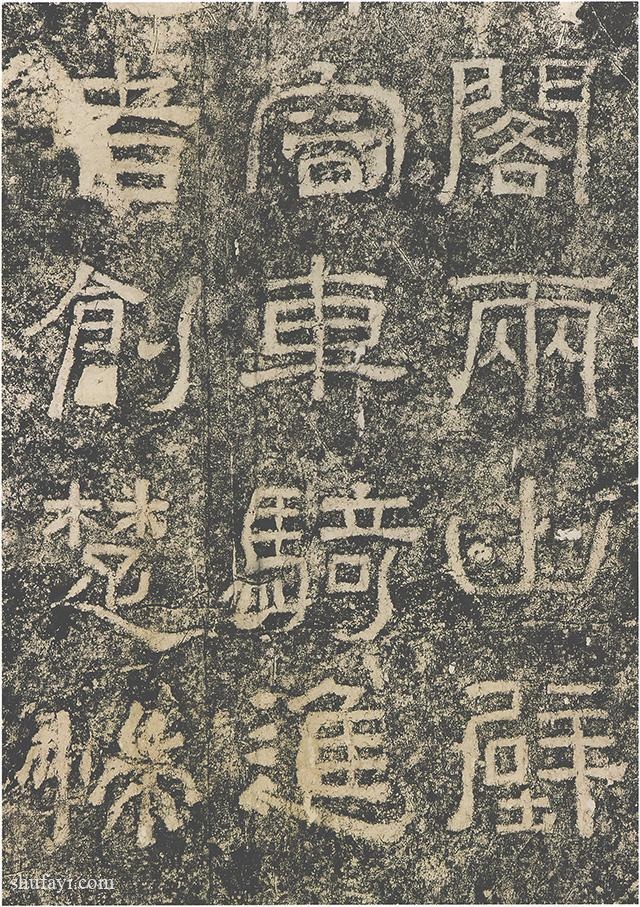 閣兩山壁
容車騎進
者創楚惴
shufayi.com